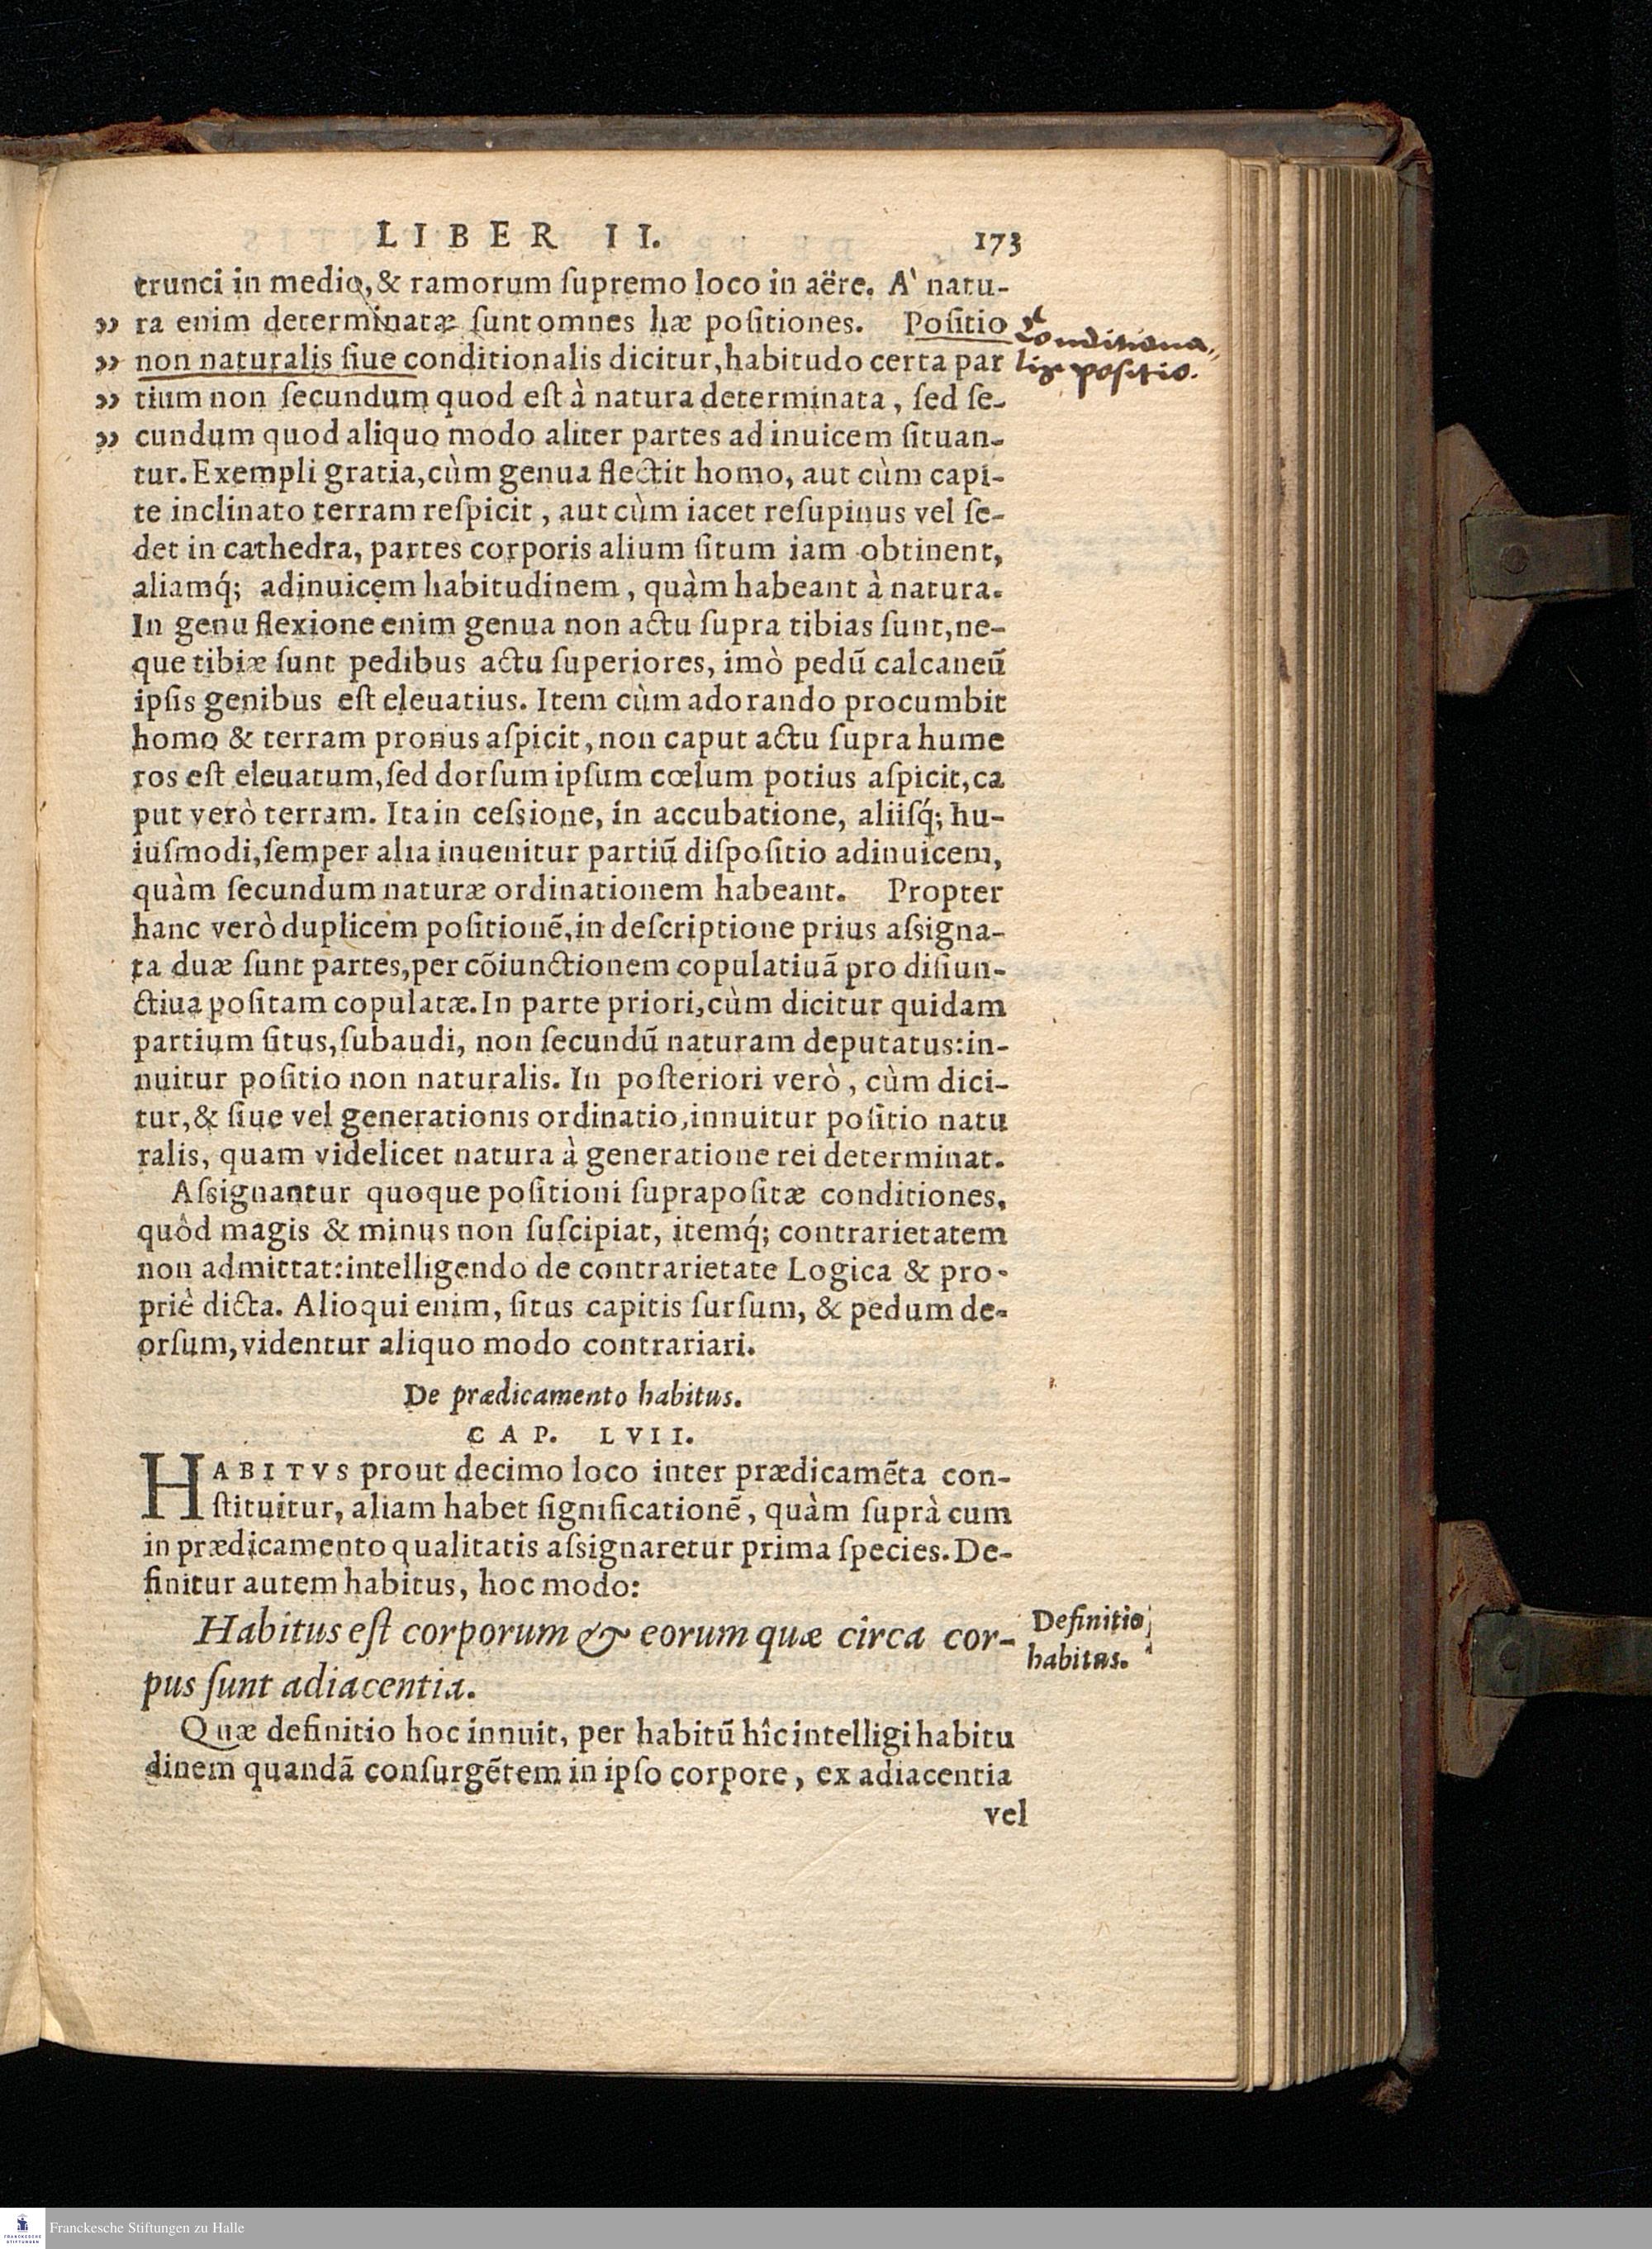 LIBER II. 173
trunci in medio, & ramorum ſupremo loco in aëre. A' natu-
„ ra enim determinatæ ſunt omnes hæ poſitiones. Poſitio
„ non naturalis ſiue conditionalis dicitur, habitudo certa par
„ tium non ſecundum quod eſt à natura determinata, ſed ſe-
„ cundum quod aliquo modo aliter partes ad inuicem ſituan-
tur. Exempli gratia, cùm genua flectit homo, aut cùm capi-
te inclinato terram reſpicit, aut cùm iacet reſupinus vel ſe-
det in cathedra, partes corporis alium ſitum iam obtinent,
aliamq́; adinuicem habitudinem, quàm habeant à natura.
In genu flexione enim genua non actu ſupra tibias ſunt, ne-
que tibiæ ſunt pedibus actu ſuperiores, imò pedū calcaneū
ipſis genibus eſt eleuatius. Item cùm adorando procumbit
homo & terram pronus aſpicit, non caput actu ſupra hume
ros eſt eleuatum, ſed dorſum ipſum cœlum potius aſpicit, ca
put verò terram. Ita in ceſsione, in accubatione, aliiſq́; hu-
iuſmodi, ſemper alia inuenitur partiū diſpoſitio adinuicem,
quàm ſecundum naturæ ordinationem habeant. Propter
hanc verò duplicem poſitionē, in deſcriptione prius aſsigna-
ta duæ ſunt partes, per cōiunctionem copulatiuā pro diſiun-
ctiua poſitam copulatæ. In parte priori, cùm dicitur quidam
partium ſitus, ſubaudi, non ſecundū naturam deputatus: in-
nuitur poſitio non naturalis. In poſteriori verò, cùm dici-
tur, & ſiue vel generationis ordinatio, innuitur poſitio natu
ralis, quam videlicet natura à generatione rei determinat.
Aſsignantur quoque poſitioni ſuprapoſitæ conditiones,
quôd magis & minus non ſuſcipiat, itemq́; contrarietatem
non admittat: intelligendo de contrarietate Logica & pro-
priè dicta. Alioqui enim, ſitus capitis ſurſum, & pedum de-
orſum, videntur aliquo modo contrariari.
De prædicamento habitus.
CAP. LVII.
HABITVS prout decimo loco inter prædicamēta con-
ſtituitur, aliam habet ſignificationē, quàm ſuprà cum
in prædicamento qualitatis aſsignaretur prima ſpecies. De-
finitur autem habitus, hoc modo:
Habitus eſt corporum & eorum quæ circa cor-
pus ſunt adiacentia.
Quæ definitio hoc innuit, per habitū hîc intelligi habitu
dinem quandā conſurgētem in ipſo corpore, ex adiacentia
vel
Conditiona-
lis poſitio.
Definitio
habitus.
Franckesche Stiftungen zu Halle
FRANCKESCHE
STIFTUNGEN